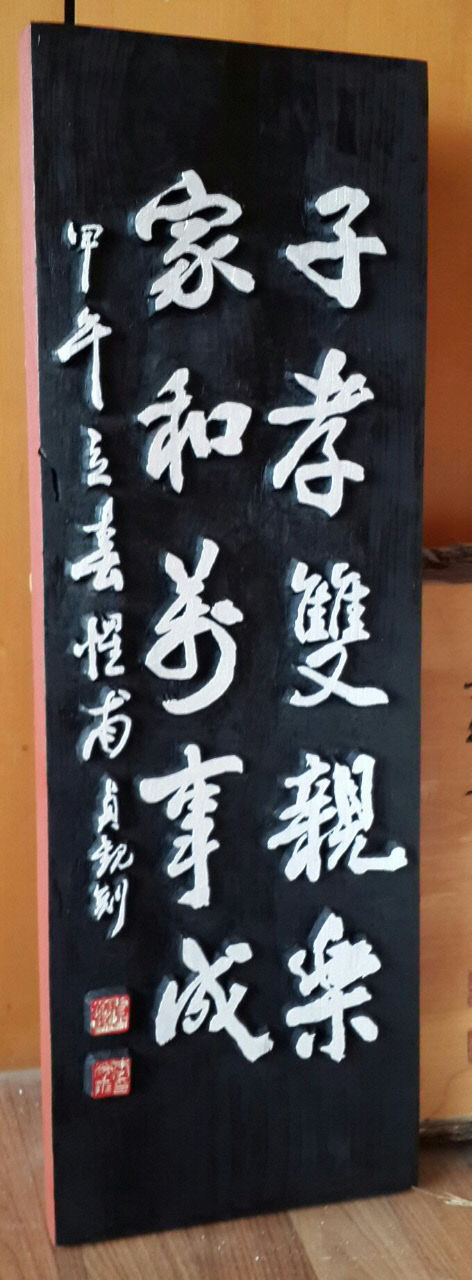 子孝雙親樂
家和萬事成
甲午立春惺甫貞觀刻